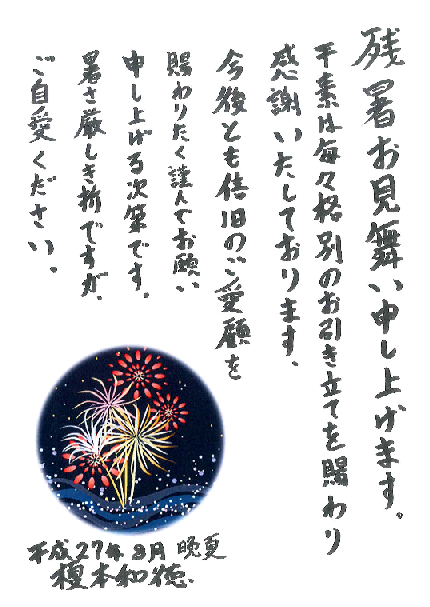 残暑お見舞い申し上げます。
平素は毎々格別のお引き立てを賜わり
感謝いたしております、
今後とも倍旧のご愛顧を
賜わりたく謹んでお願い
申し上げる次第です。
暑さ厳しき折ですが、
ご自愛ください。
平成27年8月 晩夏
榎本和徳